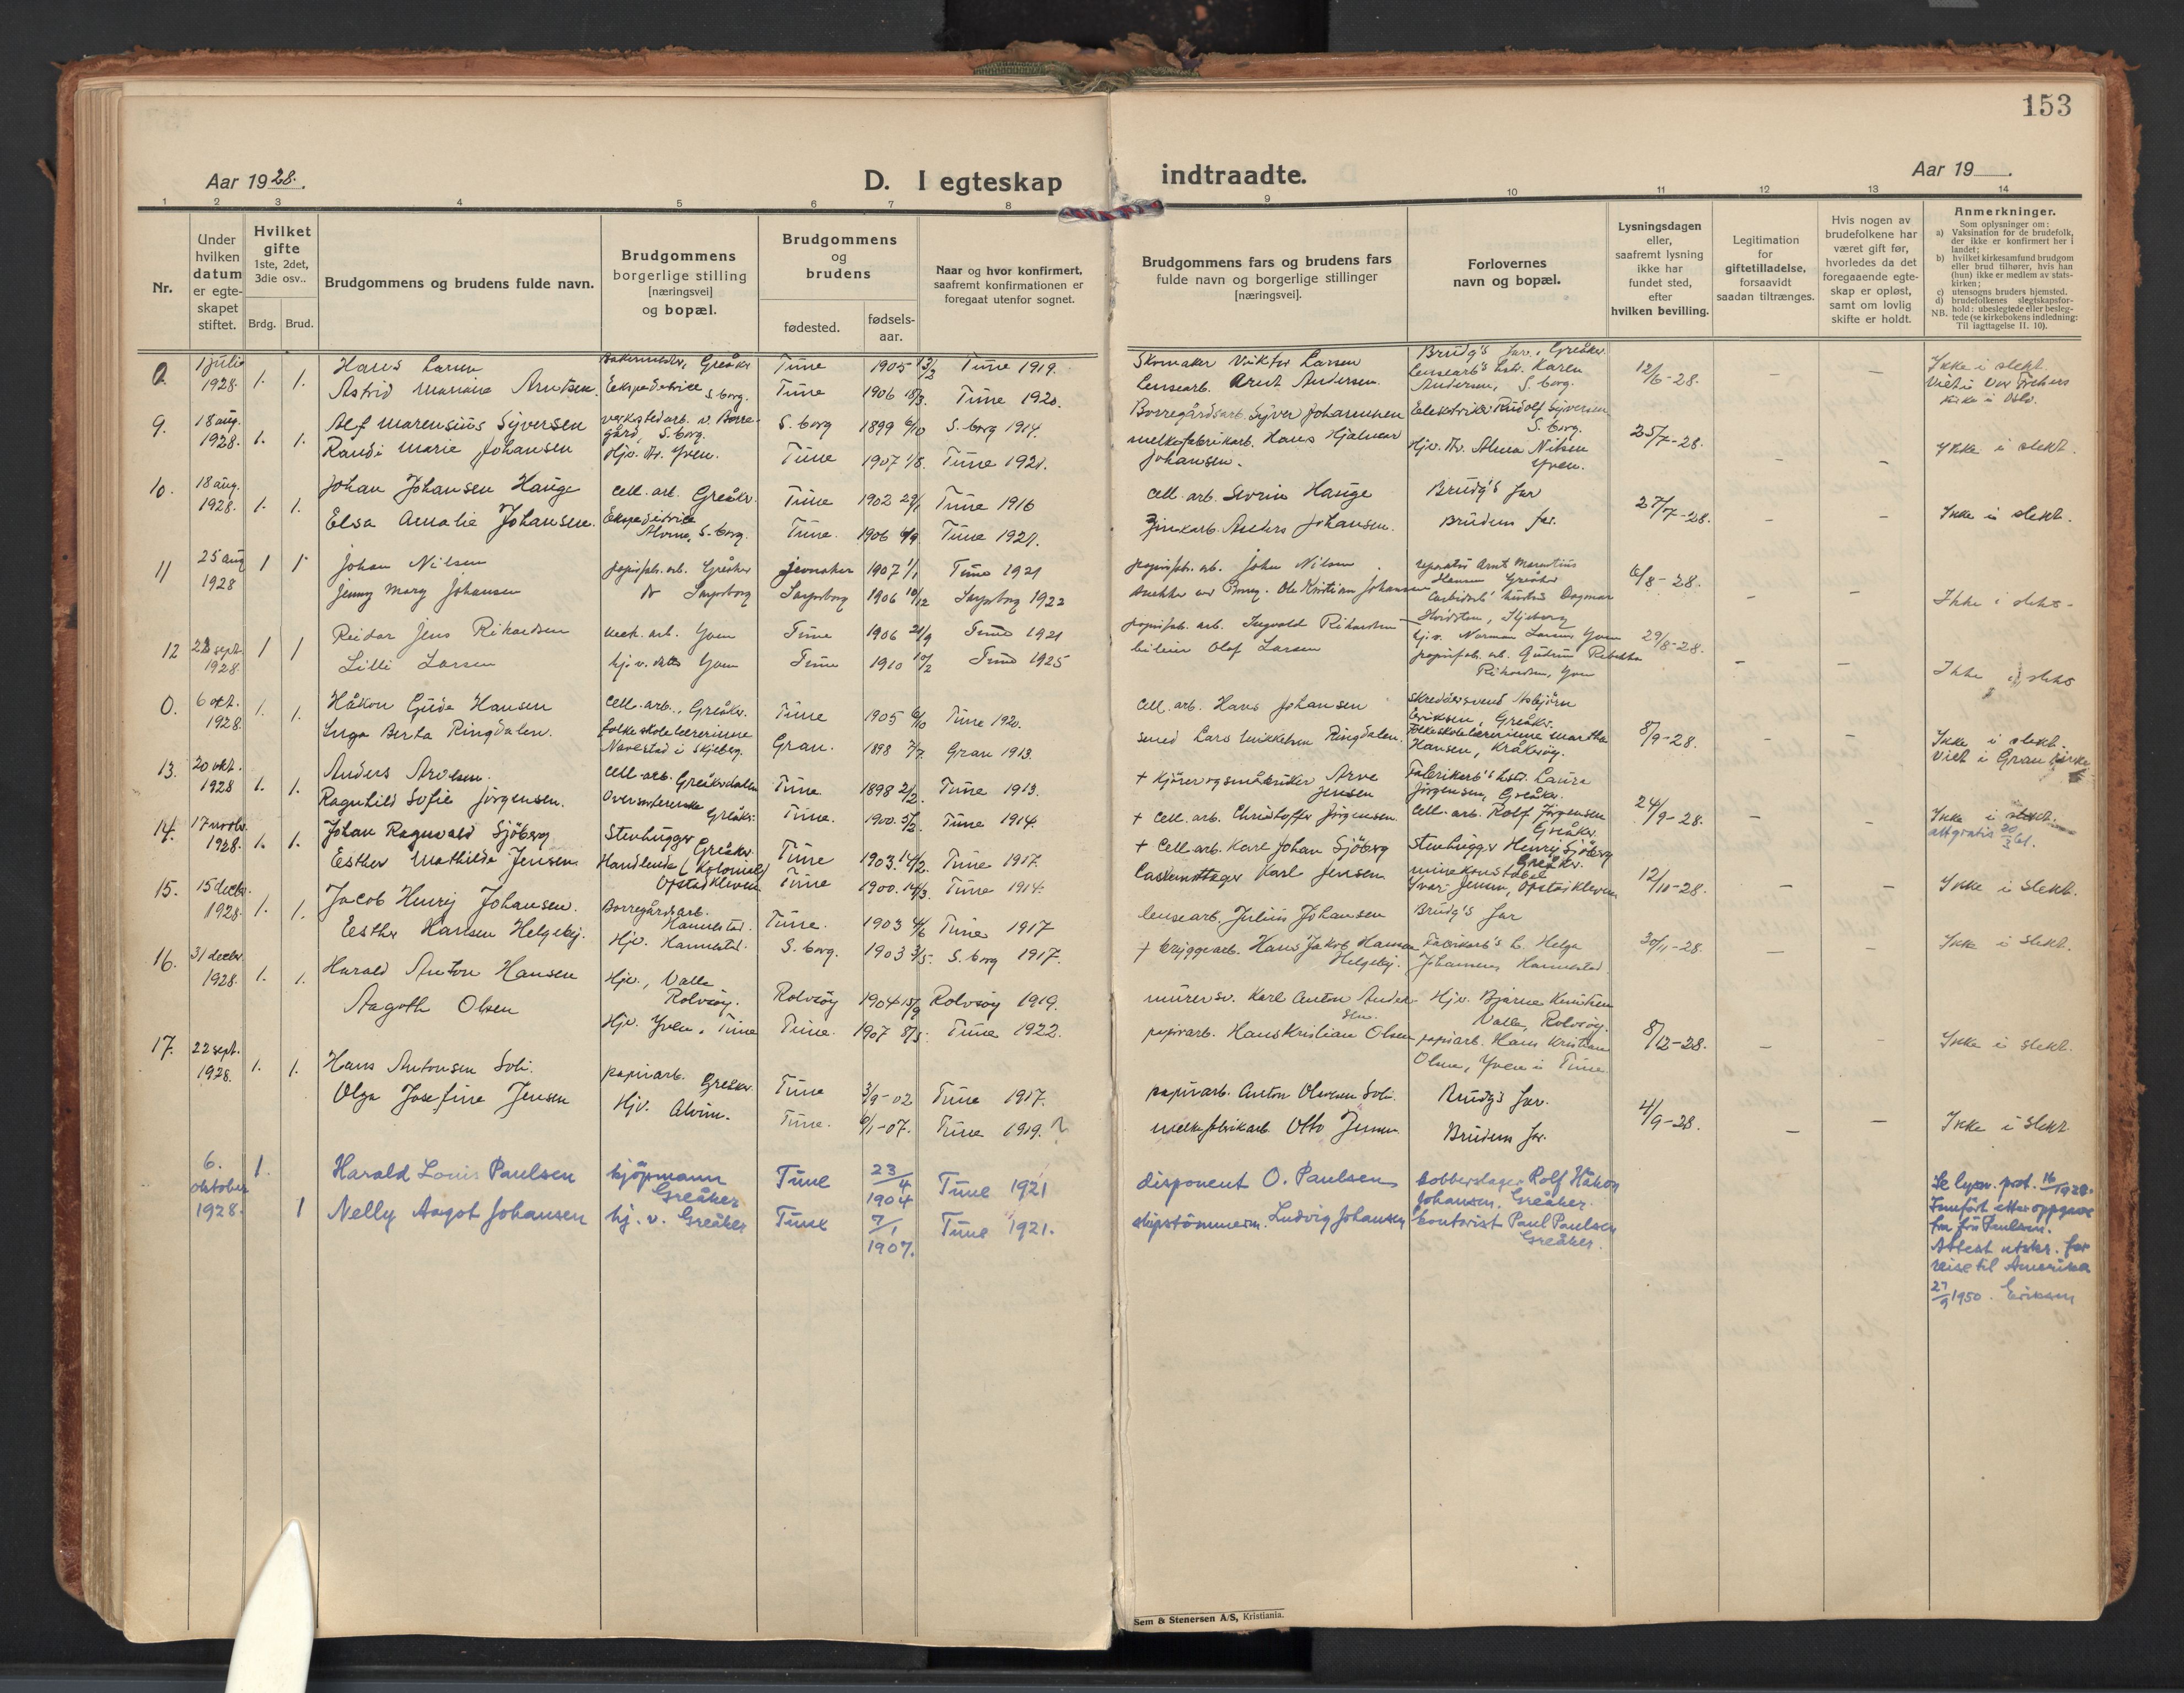 153
Aar 1928.
D. I egteskap indtraadte.
Aar 19 .
1 2 3 4 5 6 7 8 9 10 11 12 13 14
Nr.
Under hvilken datum er egteskapet stiftet.
Hvilket gifte 1ste, 2det, 3die osv..
Brdg. Brud.
Brudgommens og brudens fulde navn.
Brudgommens borgerlige stilling [næringsvei] og bopæl.
Brudgommens og brudens
fødested.
fødselsaar.
Naar og hvor konfirmert, saafremt konfirmationen er foregaat utenfor sognet.
Brudgommens fars og brudens fars fulde navn og borgerlige stillinger [næringsvei].
Forlovernes navn og bopæl.
Lysningsdagen eller, saafremt lysning ikke har fundet sted, efter hvilken bevilling.
Legitimation for giftetilladelse, forsaavidt saadan tiltrænges.
Hvis nogen av brudefolkene har været gift før, hvorledes da det foregaaende egteskap er opløst, samt om lovlig skifte er holdt.
Anmerkninger.
Som oplysninger om:
a) Vaksination for de brudefolk, der ikke er konfirmert her i landet;
b) hvilket kirkesamfund brudgom eller brud tilhører, hvis han (hun) ikke er medlem av statskirken;
c) utensogns bruders hjemsted.
d) brudefolkenes slegtskapsforhold: ubeslegtede eller beslegtede (se kirkebokens indledning:
NB. Til iagttagelse II. 10).
0. 1 juli 1928. 1. 1. Hans Larsen Greåker Tune 1905 13/2 Tune 1919. Skomaker Viktor Larsen Brudg's far, Greåker 12/6-28. - - Ikke i slekt.
Astrid Mariane Arntsen. Ekspeditrice S.borg. Tune 1906 18/3. Tune 1920. Lensearb. Arnt Andersen. Lensearb's hst. Karen Andersen, S.borg. Viet i Vor Frelsers kirke i Oslo.
9. 18 aug. 1928. 1. 1. Alf Marensius Syversen verkstedarb. v. Borregård, S.borg. S.borg 1899 6/10 S.borg 1914. Borregårdsarb. Syver Johannesen Elektriker Rudolf Syversen S.borg. 25/7-28. - - Ikke i slekt.
Randi Marie Johansen Hjv. dtr. Yven. Tune 1907 1/8. Tune 1921. melkefabrikarb. Hans Hjalmar Johansen. Hjv. Fr. Alma Nilsen Yven.
10. 18 aug. 1928. 1. 1. Johan Johansen Hauge Cell. arb. Greåker. Tune 1902 29/1 Tune 1916 Cell. arb. Severin Hauge Brudg's far 27/7-28. - - Ikke i slekt.
Elsa Amalie Johansen. Ekspeditrice Alvim, S.borg. Tune. 1906 Tune 1921. Zinkarb. Anders Johansen. Brudens far.
11 25 aug 1928 1 1 Johan Nilsen papirfab. arb. Greåker Jevnaker 1907 1/1 Tune 1921 papirfab. arb. John Nilsen reparatør Arnt Marentius Hansen Greåker 6/8-28. - - Ikke i slekt
Jenny Mary Johansen Sarpsborg Sarpsborg 1906 10/12 Sarpsborg 1922 Ole Kristian Johansen Dagmar
12 22 sept. 1928. 1 1 Reidar Jens Rikardsen cell. arb. Yven Tune 1906 21/9 Tune 1921 papirfab. arb. Ingvald Rikardsen hj.v. Norman Larsen Yven 29/8-28. - - Ikke i slekt
Lilli Larsen hj. v. Yven Tune 1910 10/2 Tune 1925 Olaf Larsen papirfab. arb. Gudrun Rebekka Rikardsen, Yven
0. 6 okt. 1928. 1. 1. Håkon Gude Hansen Cell. arb., Greåker. Tune 1905 6/10 Tune 1920. Cell. arb. Hans Johansen Skreddersvend Asbjörn Eriksen, Greåker. 8/9-28. - - Ikke i slekt.
Inga Berta Ringdalen. folkeskolelærerinne Navestad i Skjeberg. Gran. 1898 7/7. Gran 1913. smed Lars Mikkelsen Ringdalen. Folkeskolelærerinne Martha Hansen, Kråkerøy. Viet i Gran kirke
13. 20 okt. 1928 1. 1. Anders Arvesen. Cell. arb. Greåkerdalen Tune 1898 2/2. Tune 1913. + Kjører og småbruker Arve Jensen Fabrikarb's hst. Laura Jörgensen, Greåker. 24/9-28. - - Ikke i slekt.
Ragnhild Sofie Jörgensen. Greåker. Tune. 1900. 5/2. Tune 1914. + Cell. arb. Christoffer Jörgensen. Cell. arb. Rolf Jörgensen Greåker. att gratis 20/3 61.
14. 17 novbr. 1928. 1. 1. Johan Ragnvald Sjöberg Stenhugger Greåker. Tune 1903 14/2. Tune 1917. + Cell. arb. Karl Johan Sjöberg Stenhugger Henry Sjöberg Greåker. 12/11-28. - - Ikke i slekt.
Esther Mathilde Jensen. Handlende (Kolonial) Opstadkleven Tune 1900. 14/3. Tune 1914. Karl Jensen minekonstabel Ivar Jensen, Opstadkleven
15. 15 decbr. 1928. 1. 1. Jacob Henry Johansen. Borregårdsarb. Hannestad. Tune. 1903 4/6 Tune 1917 lensearb. Julius Johansen Brudg's far 30/11-28. - - Ikke i slekt.
Esther Hansen Helgeby. Hjv. Hannestad. S.borg. 1903 3/5. S.borg 1917. + bryggearb. Hans Jakob Hansen Helgeby. Fabrikarb's h. Helga Johannesen Hannestad.
16. 31 decbr. 1928. 1. 1. Harald Anton Hansen Hjv., Valle Rolvsøy. Rolvsøy 1904 15/9 Rolvsøy 1919. murersv. Karl Anton Andersen. Hjv. Bjarne Valle, Rolvsøy. 8/12-28. - - Ikke i slekt.
Aagoth Olsen Hjv. Yven, Tune Tune. 1907 8/5. Tune 1922. papirarb. Hans Kristian Olsen papirarb. Hans Kristian Olsen, Yven i Tune
17. 22 sept. 1928. 1. 1. Hans Antonsen Soli. papirarb. Greåker. Tune 3/9-02 Tune 1917. papirarb. Anton Olsen Soli. Brudg's far. 4/9-28. - - Ikke i slekt
Olga Josefine Jensen Hjv. Alvim. Tune. 6/1-07. Tune 1919. ? melkefabrikarb. Otto Jensen. Brudens far.
6. oktober 1928. 1. Harald Louis Paulsen kjöpmann Greåker Tune 23/4 1904 Tune 1921 disponent O. Paulsen kobberslager Rolf Håkon Johansen, Greåker. Se lysn. prot. 16/1928.
1 Nelly Aagot Johansen hj. v. Greåker Tune 7/1 1907. Tune 1921. slipstömmerm. Ludvig Johansen kontorist Paul Paulsen Greåker. Innfört etter oppgave fra fru Paulsen.
Attest utskr. for reise til Amerika 27/9 1950. Eriksen
Sem & Stenersen A/S, Kristiania.